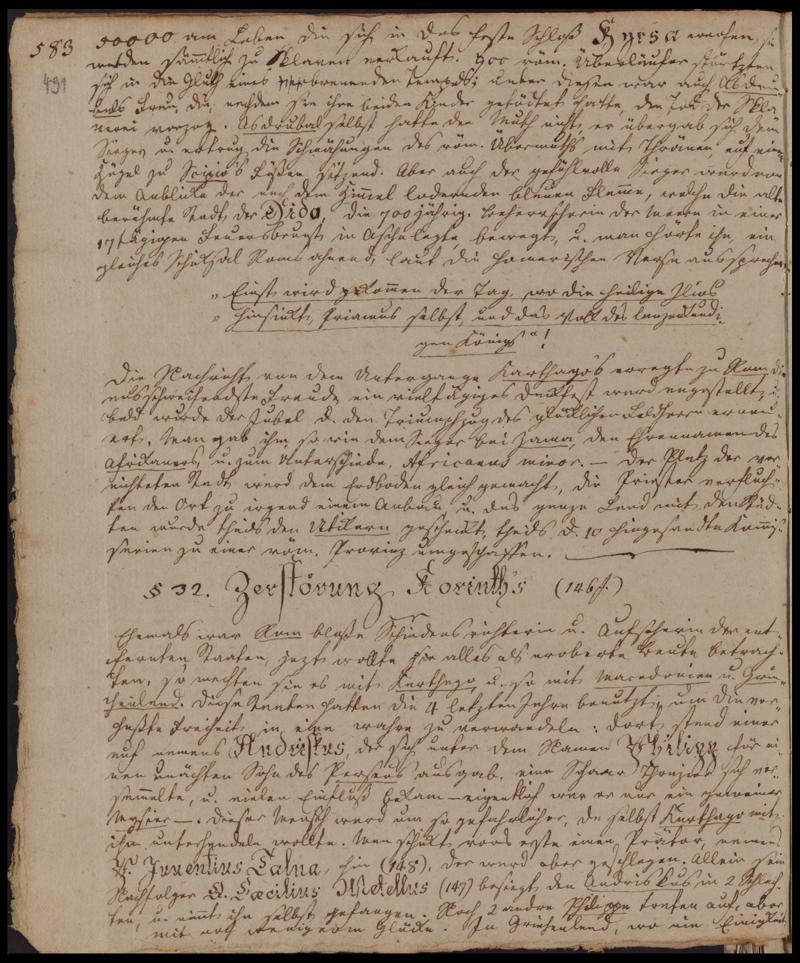 583
491
50000 am Leben die sich in das feste Schloß Byrsa warfen, sie
wurden sämmtlich zu Sklaven verkauft. 900 röm. Überläufer stürzten
sich in die Gluth eines verbrennenden Tempels; unter diesen war auch Asdru-
bals Frau, die, nachdem sie ihre beiden Kinder getödtet hatte, den Tod der Skla-
verei vorzog. Asdrubal selbst hatte den Muth nicht, er übergab sich dem
Sieger u. ertrug die Schmähungen des röm. Übermuths mit Thränen, auf einem
Hügel zu Scipio's Füßen sitzend. Aber auch der gefühlvolle Sieger wurde von
dem Anblicke der nach dem Himmel lodernden blauen Flamme, welche die alte
berühmte Stadt der Dido, die 700 jährig. Beherrscherin der Meere in einer
17 tägigen Feuersbrunst in Asche legte bewegt, u. man hörte ihn, ein
gleiches Schicksal Roms ahnend, laut die homerischen Verse aussprechen
„ Einst wird kommen der Tag, wo die heilige Ilios
„ hinsinkt, Priamus selbst, und das Volk des lanzenkundi-
gen Königs"!
Die Nachricht von dem Untergange Karthago's erregte zu Rom die
ausschweifendste Freude, ein vieltägiges Dankfest ward angestellt, u.
bald wurde der Jubel d. den Triumphzug des glücklichen Feldherrn erneu-
ert. Man gab ihm, so wie dem Sieger bei Zama, den Ehrennamen des
Afrikaners, u. zum Unterschiede, Africanus minor. — Der Platz der ver-
nichteten Stadt ward dem Erdboden gleich gemacht, die Priester verfluch-
ten den Ort zu irgend einem Anbau, u. das ganze Land mit den Städ-
ten wurde theils den Utikern geschenkt, theils d. 10 hingesandte Kommis-
sarien zu einer röm. Provinz umgeschaffen.
§ 32. Zerstörung Korinth's (146 f.)
Ehemals war Rom bloße Schiedsrichterin u. Aufseherin der ent-
fernten Staaten, jezt wollte sie alles als eroberte Beute betrach-
ten, so machten sie es mit Karthago, u. so mit Macedonien u. Grie-
chenland. Diese Staaten hatten die 4 letzten Jahre benutzt, um die ver-
haßte Freiheit in eine wahre zu verwandeln: dort stand einer
auf namens Andriskus, der sich unter dem Namen Philipp für ei-
nen unächten Sohn des Perseus ausgab, eine Schaar Thrazier sich ver-
sammelte, u. vielen Einfluß bekam — eigentlich war er nur ein gemeiner
Mysier —. Dieser Mensch ward um so gefährlicher, da selbst Karthago mit
ihm unterhandeln wollte. Man schickt vors erste einen Prätor, namens
P. Juventius Talna, hin (148), der ward aber geschlagen. Allein sein
Nachfolger Q. Cæcilius Metellus (147) besiegt den Andriskus in 2 Schlach-
ten, u. nimt ihn selbst gefangen. Noch 2 andre Philippe traten auf, aber
mit noch wenigerm Glücke. In Griechenland, wo ein Einigkeit